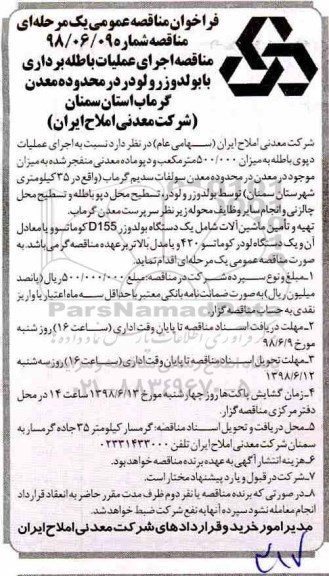 فراخوان مناقصه عمومی یک مرحله‌ای
مناقصه شماره ۹۸/۰۶/۰۹
مناقصه اجرای عملیات باطله برداری
با بولدوزر و لودر در محدوده معدن
گرماب استان سمنان
(شرکت معدنی املاح ایران)
شرکت معدنی املاح ایران (سهامی عام) در نظر دارد نسبت به اجرای عملیات
دپوی باطله به میزان ۵۰۰/۰۰۰ مترمکعب و دپو ماده معدنی منفجر شده به میزان
موجود در معدن در محدوده معدن سولفات سدیم گرماب (واقع در ۳۵ کیلومتری
شهرستان سمنان) توسط بولدوزر و لودر، تسطیح محل دپو باطله و تسطیح محل
چالزنی و انجام سایر وظایف محوله زیر نظر سرپرست معدن گرماب.
تهیه و تأمین ماشین آلات شامل یک دستگاه بولدوزر D155 کوماتسو یا معادل
آن و یک دستگاه لودر کوماتسو ۴۲۰ و یا مدل بالاتر بر عهده مناقصه گر می باشد. به
صورت مناقصه عمومی یک مرحله ای اقدام نماید.
۱ـ مبلغ و نوع سپرده شرکت در مناقصه: مبلغ ۵۰۰/۰۰۰/۰۰۰ ریال (پانصد
میلیون ریال) به صورت ضمانت نامه بانکی معتبر با حداقل سه ماه اعتبار یا واریز
نقدی به حساب مناقصه گزار.
۲ـ مهلت دریافت اسناد مناقصه تا پایان وقت اداری (ساعت ۱۶) روز شنبه
مورخ ۹۸/۶/۹
۳ـ مهلت تحویل اسناد مناقصه تا پایان وقت اداری (ساعت ۱۶) روز سه شنبه
۱۳۹۸/۶/۱۲
۴ـ زمان گشایش پاکت ها روز چهارشنبه مورخ ۱۳۹۸/۶/۱۳ ساعت ۱۴ در محل
دفتر مرکزی مناقصه گزار.
۵ـ محل دریافت و تحویل اسناد مناقصه: گرمسار کیلومتر ۳۵ جاده گرمسار به
سمنان شرکت معدنی املاح ایران تلفن ۰۲۳۳۱۴۳۳۰۰۰
۶ـ هزینه انتشار آگهی به عهده برنده مناقصه خواهد بود.
۷ـ شرکت در قبول و یا رد پیشنهاد مختار است.
۸ـ در صورتی که برنده مناقصه یا نفر دوم ظرف مدت مقرر حاضر به انعقاد قرارداد
انجام معامله نشود سپرده آنها به نفع شرکت ضبط خواهد شد.
مدیر امور خرید و قراردادهای شرکت معدنی املاح ایران